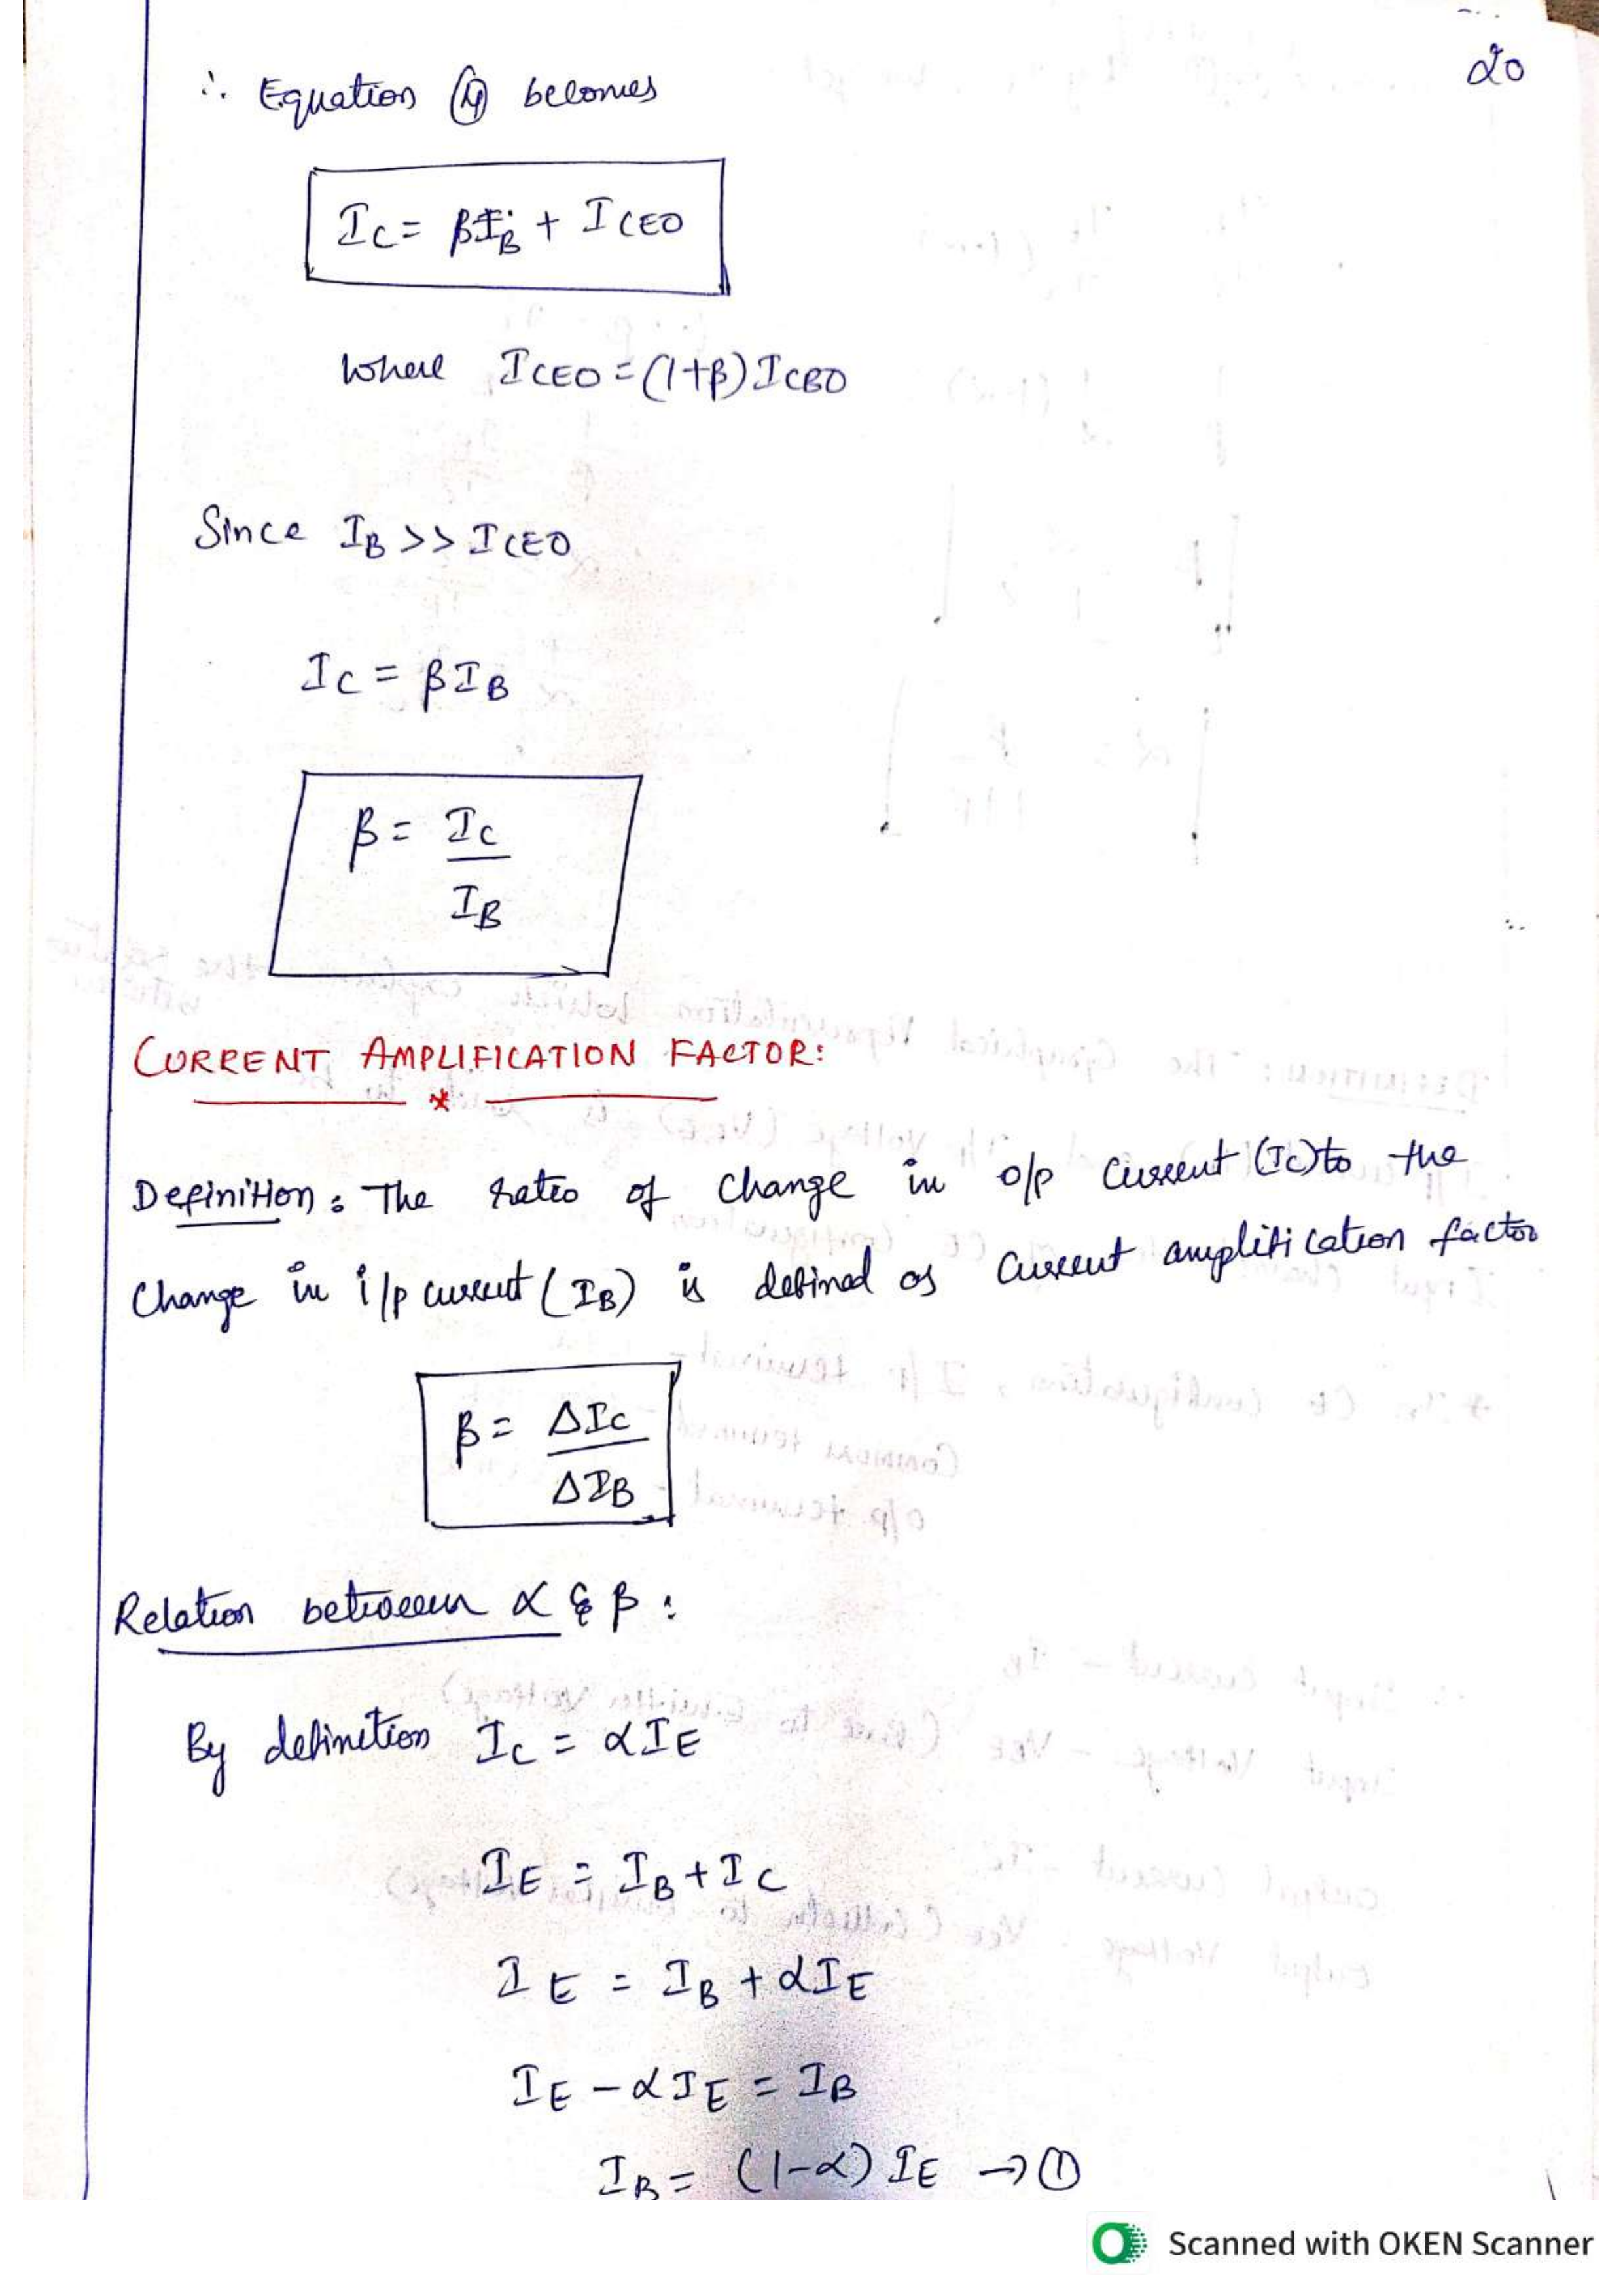 20
∴ Equation ④ becomes
IC = βIB + ICEO
where ICEO = (1+β) ICBO
Since IB >> ICEO
IC = βIB
β = IC / IB
CURRENT AMPLIFICATION FACTOR:
Definition: The ratio of change in o/p current (IC) to the
change in i/p current (IB) is defined as current amplification factor
β = ΔIC / ΔIB
Relation between α & β:
By definition IC = αIE
IE = IB + IC
IE = IB + αIE
IE - αIE = IB
IB = (1-α) IE → ①
Scanned with OKEN Scanner